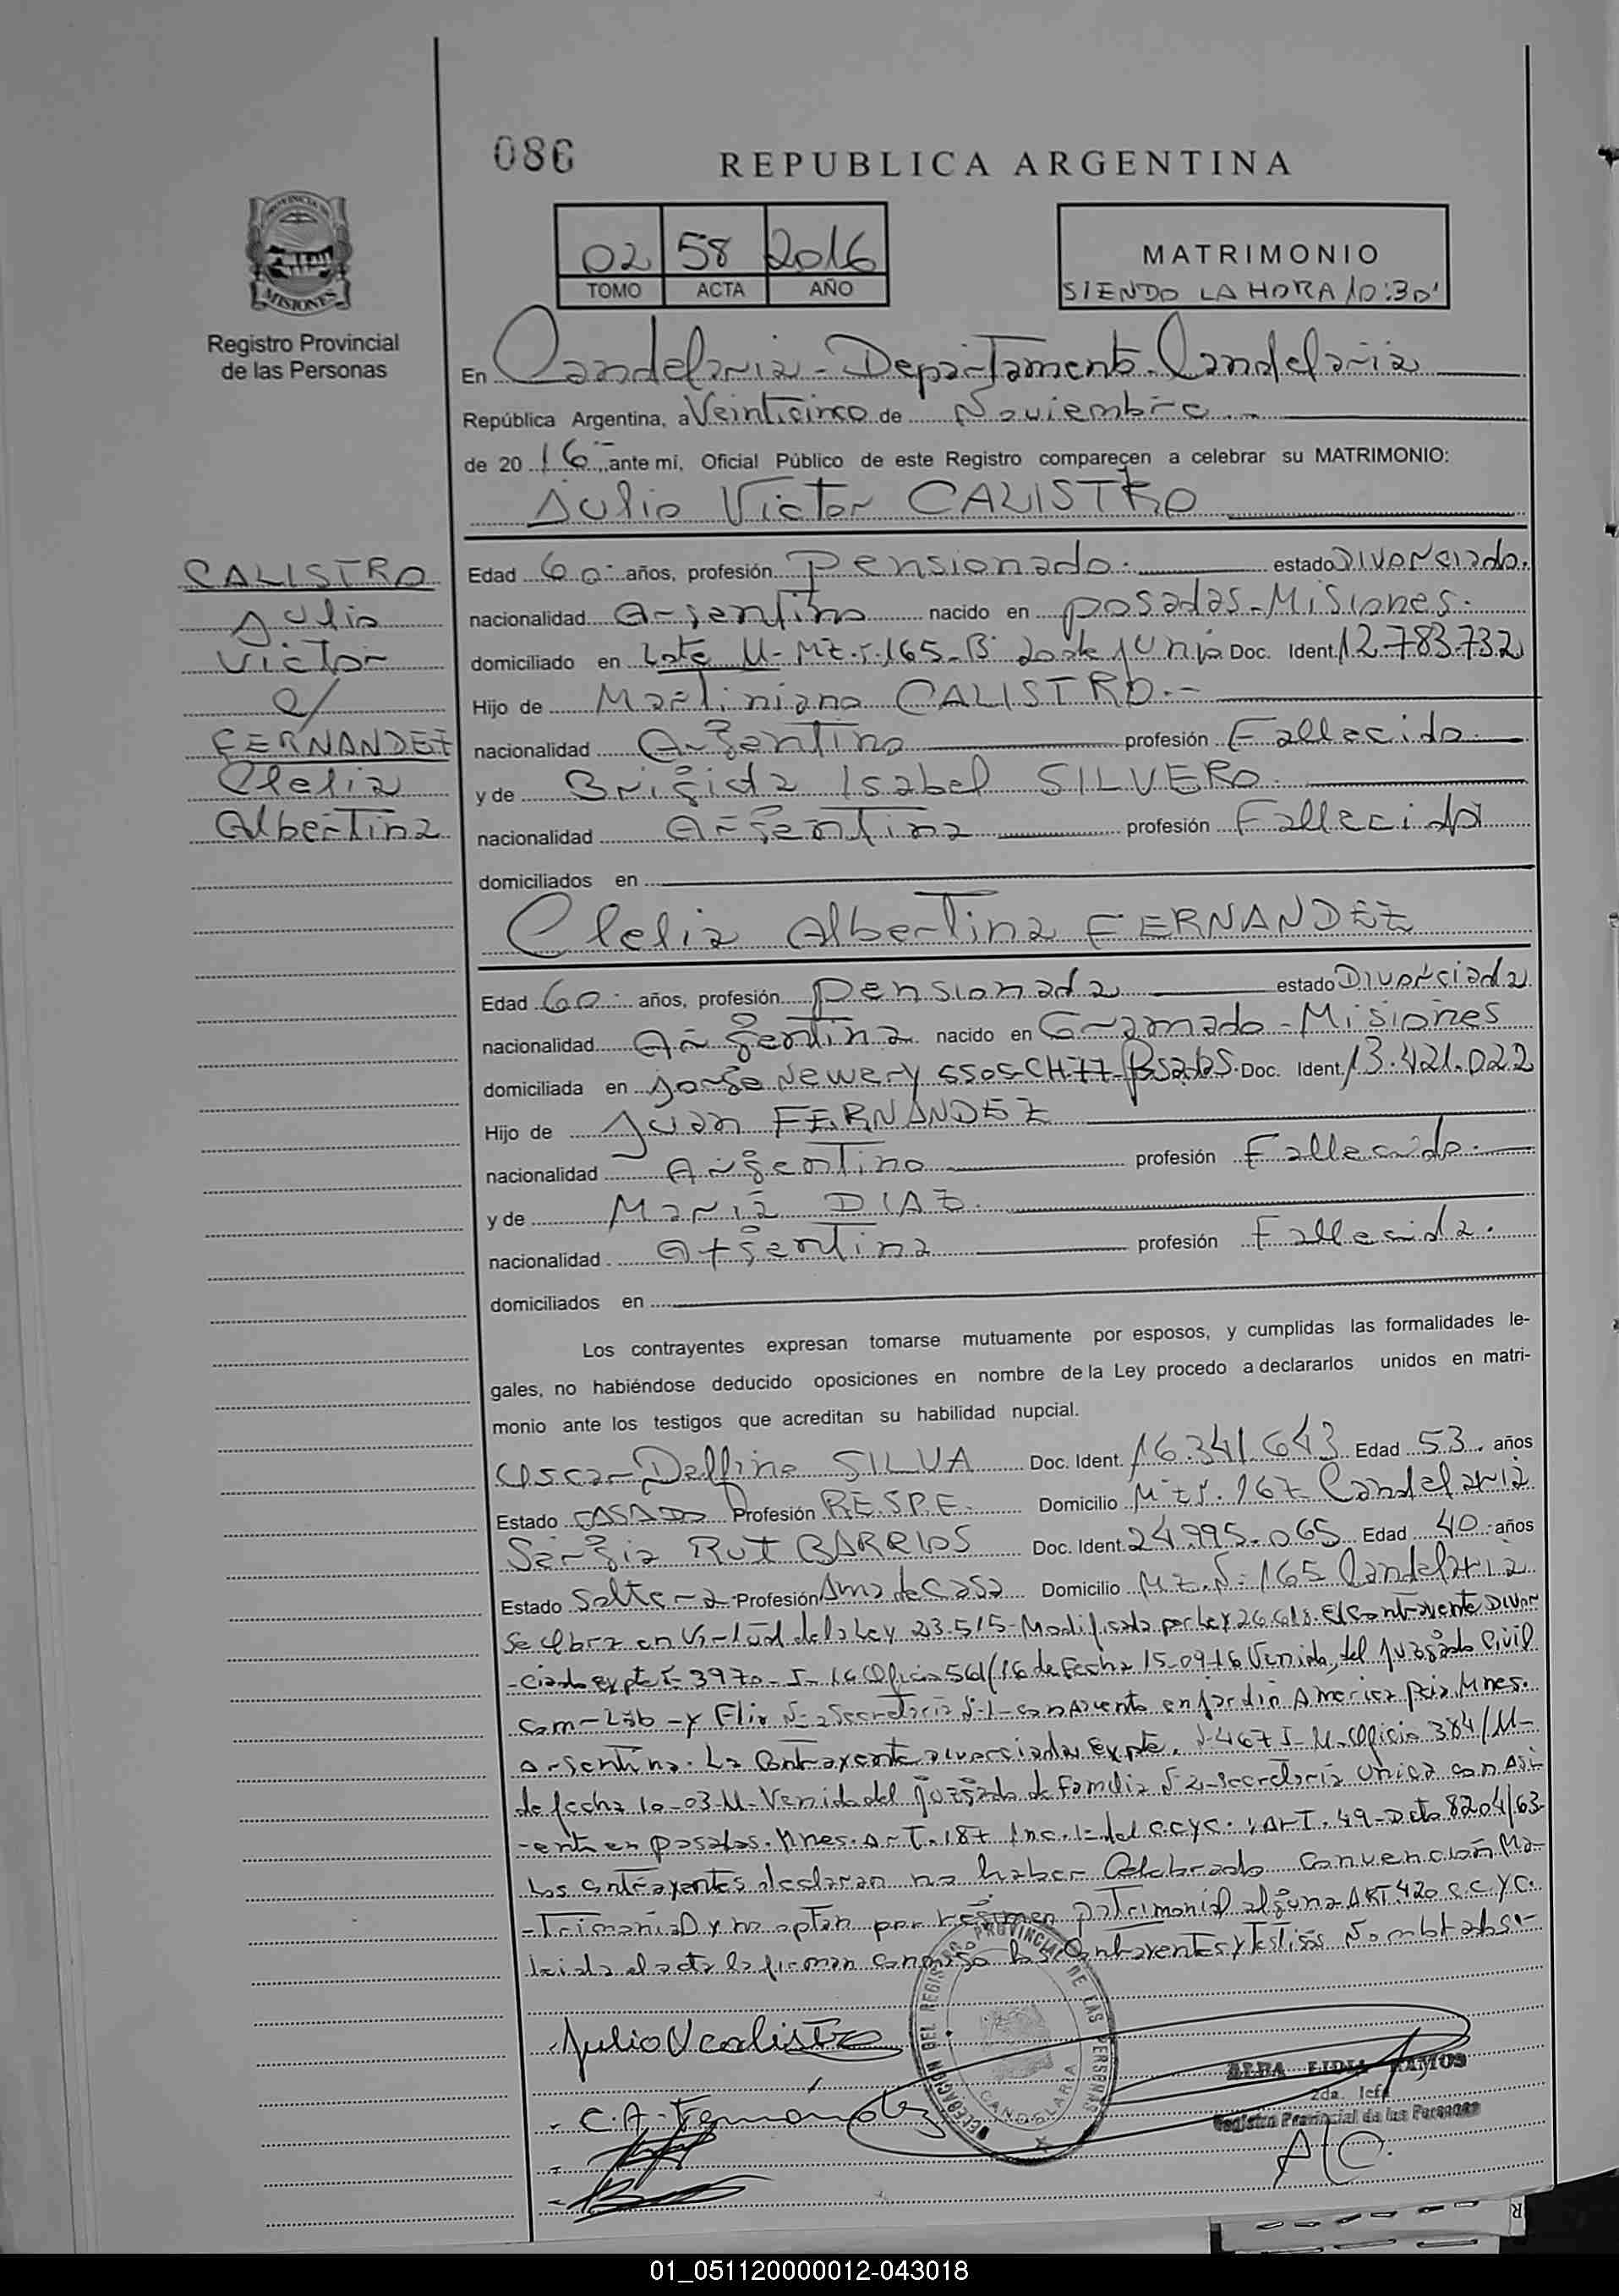 086
REPUBLICA ARGENTINA
PROVINCIA DE
MISIONES
Registro Provincial
de las Personas
02 58 2016
TOMO ACTA AÑO
MATRIMONIO
SIENDO LA HORA 10:30'
En Candelaria - Departamento Candelaria
República Argentina, a Veinticinco de Noviembre
de 2016 ante mí, Oficial Público de este Registro comparecen a celebrar su MATRIMONIO:
Julio Victor CALISTRO
CALISTRO
Julio
Victor
c/
FERNANDEZ
Clelia
Albertina
Edad 60 años, profesión Pensionado. estado Divorciado.
nacionalidad Argentino nacido en Posadas - Misiones.
domiciliado en Lote 11 - Mz. 165 - B° 20 de Junio Doc. Ident. 12.783.732
Hijo de Martiniano CALISTRO.-
nacionalidad Argentino profesión Fallecido
y de Brigida Isabel SILVERO.
nacionalidad Argentina profesión Fallecida
domiciliados en
Clelia Albertina FERNANDEZ
Edad 60 años, profesión Pensionada estado Divorciada
nacionalidad Argentina nacido en Gramado - Misiones
domiciliada en Jorge Newery 5505 - CH 77 - Posadas. Doc. Ident. 13.421.022
Hijo de Juan FERNANDEZ
nacionalidad Argentino profesión Fallecido.
y de Maria DIAZ.
nacionalidad Argentina profesión Fallecida.
domiciliados en
Los contrayentes expresan tomarse mutuamente por esposos, y cumplidas las formalidades le-
gales, no habiéndose deducido oposiciones en nombre de la Ley procedo a declararlos unidos en matri-
monio ante los testigos que acreditan su habilidad nupcial.
Oscar Delfino SILVA Doc. Ident. 16.341.643 Edad 53. años
Estado CASADO Profesión RE.S.P.E. Domicilio Mz. 167 Candelaria
Sergia RUT BARRIOS Doc. Ident. 24.995.065 Edad 40 años
Estado Soltera Profesión Ama de casa Domicilio Mz. N° 165 Candelaria
Se labra en Virtud de la Ley 23.515 - Modificada por Ley 26.618. El Contrayente Divor
-ciado expte 3970 - 16 Oficio 561/16 de Fecha 15-09-16 Venido, del Juzgado Civil
Com - Lab - y Flia N° 2 Secretaria N° 1 - con Asiento en Jardin America Mnes.
Argentina. La Contrayente Divorciada Expte. N° 467 - 11 - Oficio 384/11 -
de fecha 10-03-11 - Venido del Juzgado de Familia N° 2 - Secretaria Unica con Asi
-ento en Posadas. Mnes. ART. 187 Inc. 1° del C.C y C. ; ART. 49 - Dcto 8204/63
Los contrayentes declaran no haber Celebrado Convención Ma-
-Trimonial y no optan por régimen patrimonial alguno ART. 420 C.C y C.
Leida el acta la firman conmigo los Contrayentes y testigos Nombrados.-
DELEGACION DEL REGISTRO PROVINCIAL DE LAS PERSONAS
CANDELARIA
Julio V calistro
C. A. Fernández
LIDIA RAMOS
2da. Jefe
Registro Provincial de las Personas
A/C.
01_051120000012-043018